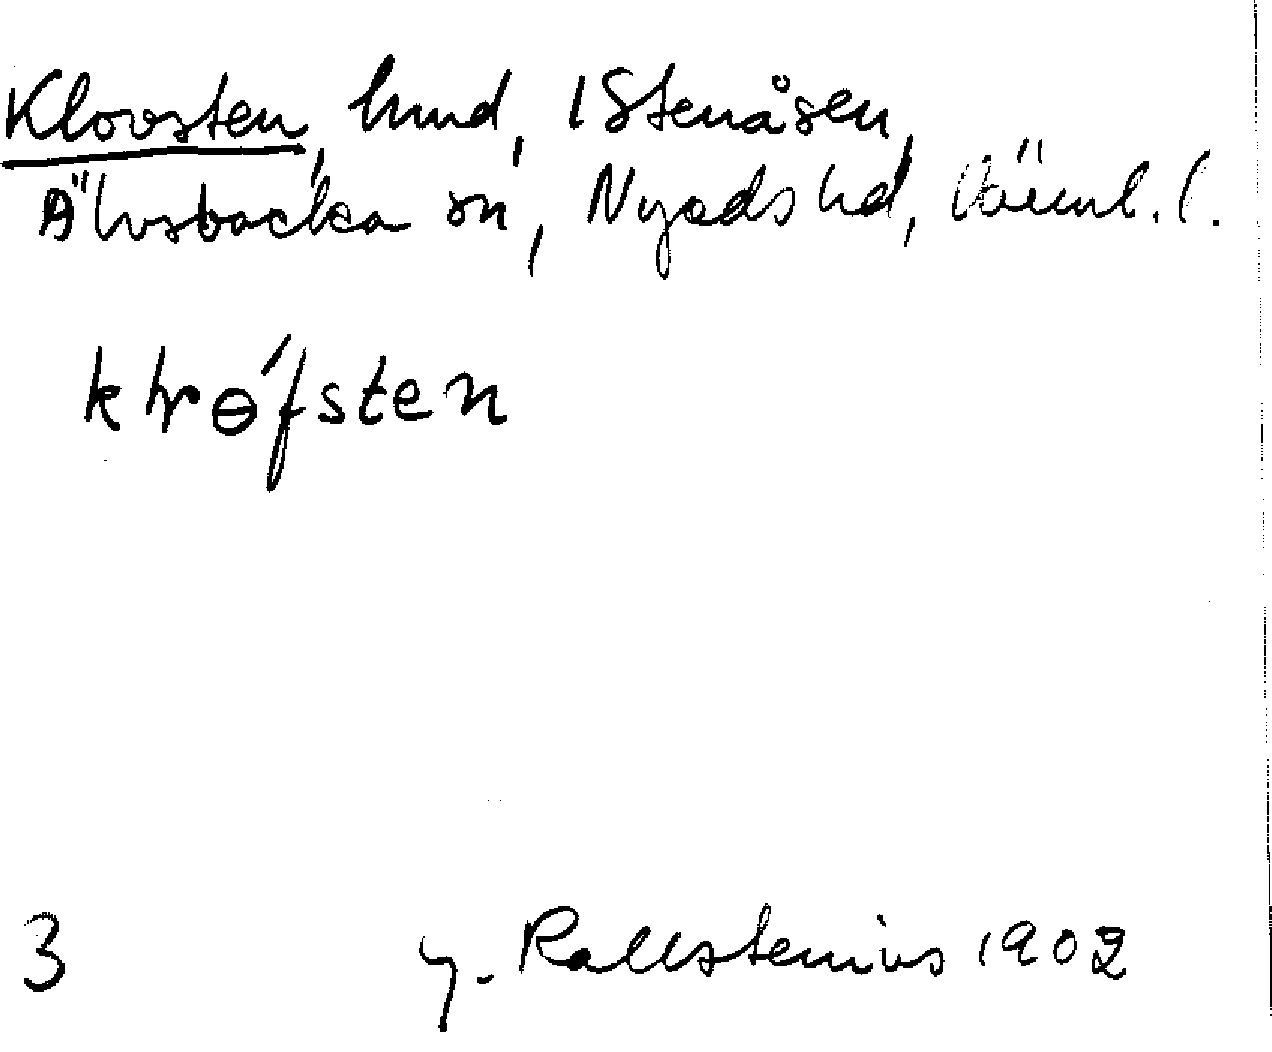 Klovsten, hmd, 1 Stenåsen,
Älvsbacka sn, Nyeds hd, Värml. l.
klɵ́fsten
3 G. Kallstenius 1902